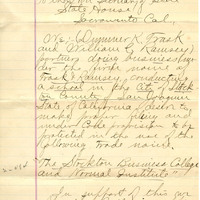 State House,
Sacramento Cal.
We, Dummer K. Trask
and William C. Ramsey,
partners doing business under
the firm name of
Trask & Ramsey, conducting
a school in the City of Stock
ton County of San Joaquin
State of California, desire to
make proper filing and
under Code provision to be
protected in the use of the
following trade name,
"The Stockton Business College
and Normal Institute"
In support of this we